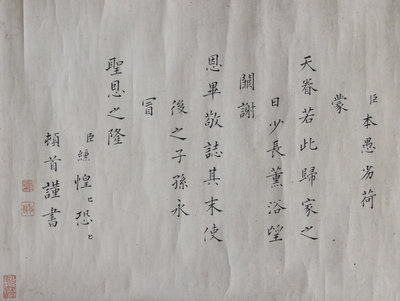 臣本愚劣荷
蒙
天眷若此歸家之
日少長薰浴望
闕謝
恩畢敬誌其末使
後之子孫永
冒
聖恩之隆
臣惶〻恐〻
頓首謹書